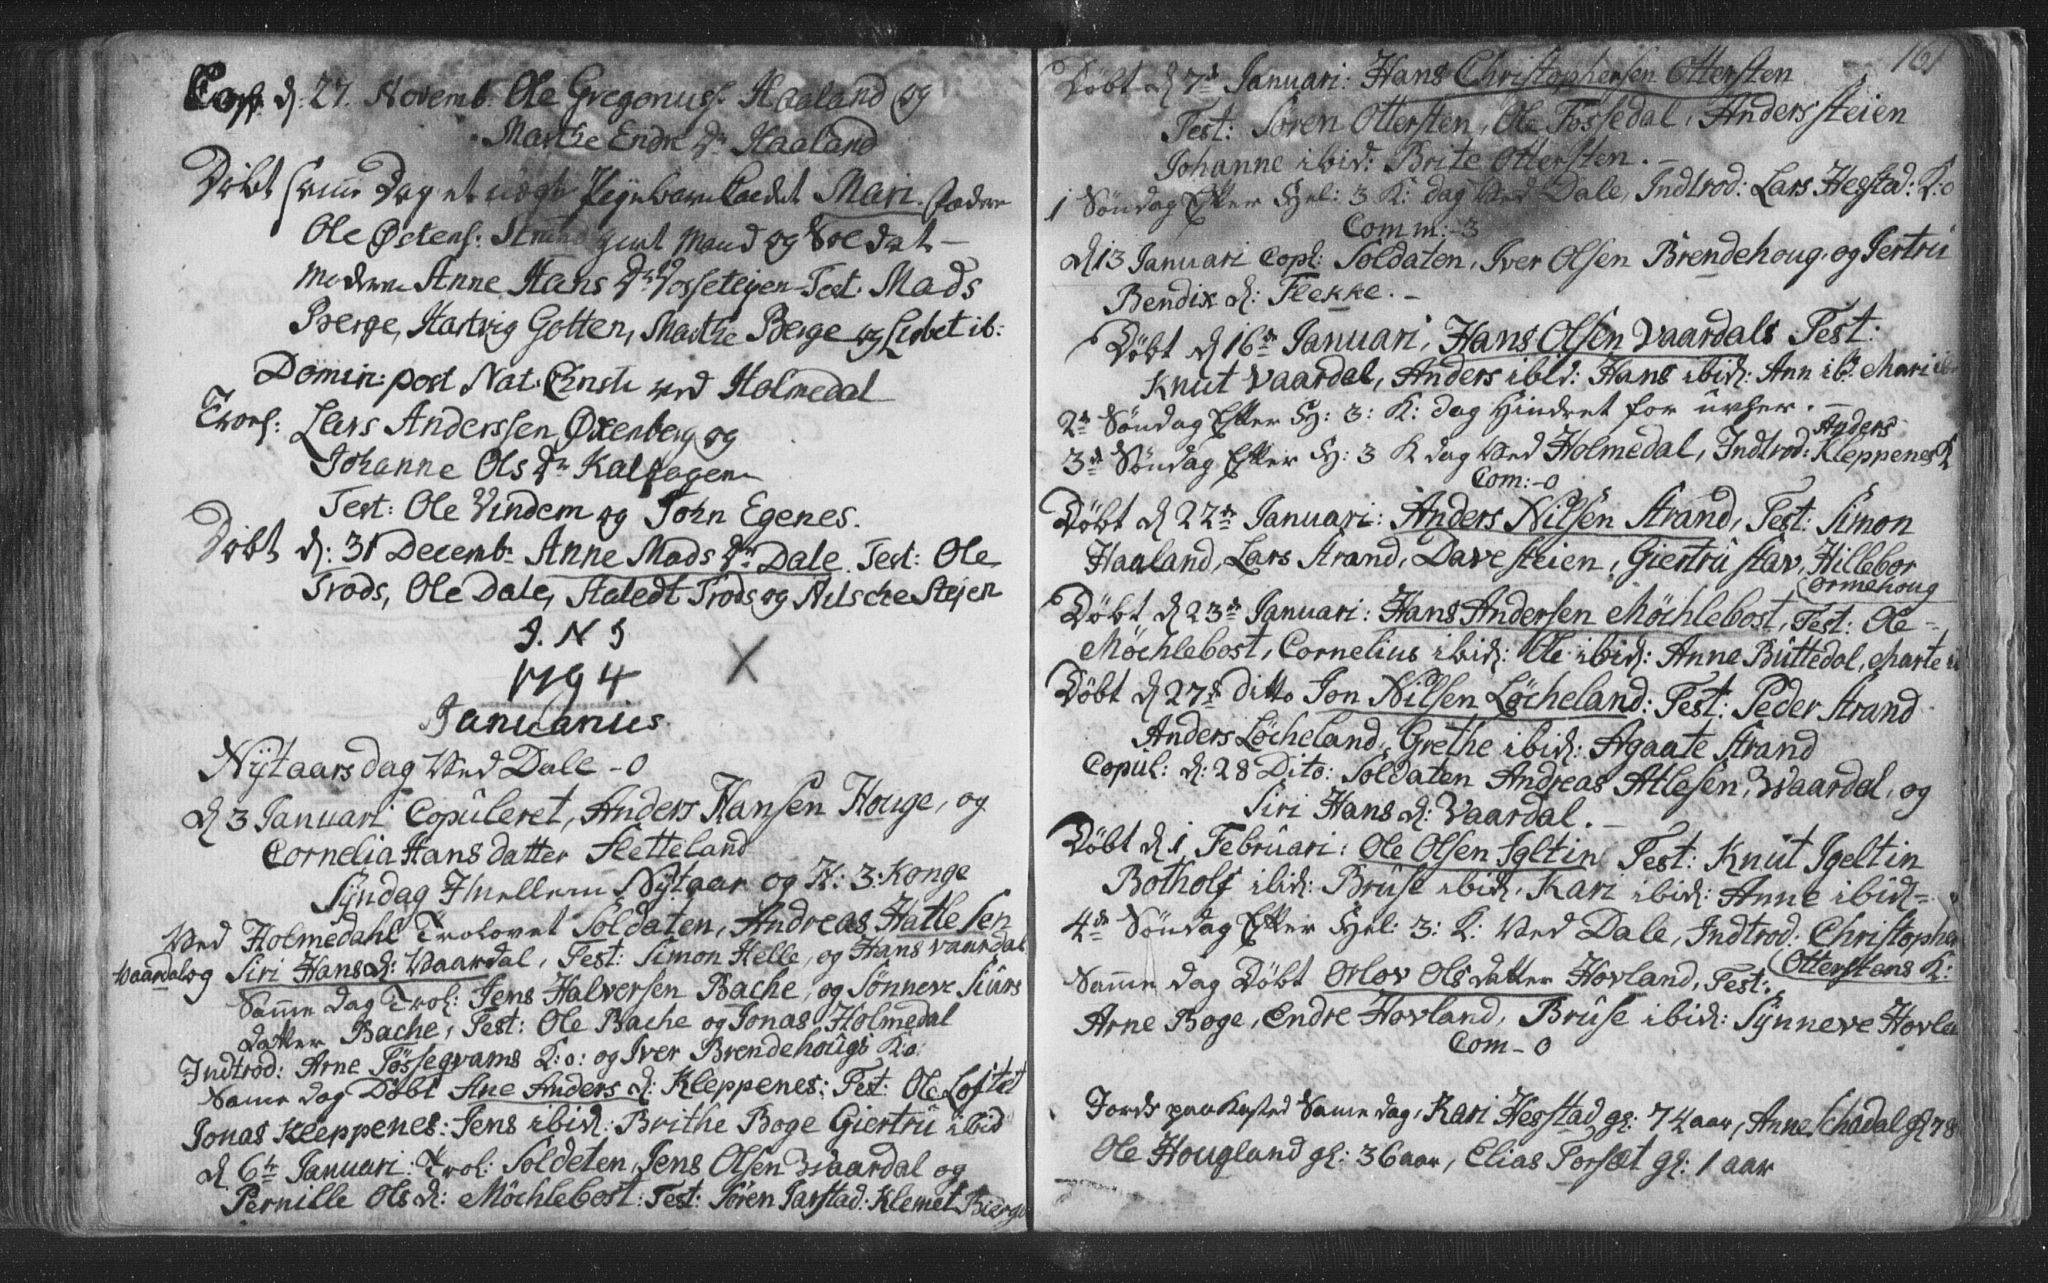 Cop: d: 27. Novemb. Ole Gregoriuss. Haaland og
Marthe Endr Dr. Haaland
Døbt samme Dag et uægte Pigebarn kaldet Mari. Fader
Ole Østens: Strand givt Mand og Soldat
Moderen Anne Hans Dr. Fossetejen Test. Mads
Berge, Hartvig Gotten, Marthe Berge og Lisbet ib:
Domin: post Nat. Christi ved Holmedal
Trol: Lars Anderssen Oxenberg og
Johanne Ols Dr. Kalfagen
Test: Ole Vindem og John Egenes.
Døbt d: 31 Decemb. Anne Mads Dr. Dale. Test: Ole
Trods, Ole Dale, Aaledt Trods og Nilsche Stejen
J. N J
1794
Januarius
Nÿtaarsdag Ved Dale - 0
d 3 Januari Copuleret, Anders Hansen Houge, og
Cornelia Hans datter Sletteland
Syndag Imellem Nÿtaar og H: 3: Konge
Ved Holmedahl Trolovet Soldaten, Andreas Hatlesen
Vaardal og Siri Hans d: Vaardal, Test: Simon Helle, og Hans Vaardal
Samme dag Trol: Jens Halversen Bache, og Sønneve Siurs
datter Bache, Test: Ole Bache og Jonas Holmedal
Indtrod: Arne Fossegrams K: 0: og Iver Brendehougs K 0
Samme dag Døbt Ane Anders d: Kleppenes: Test: Ole Loftet
Jonas Kleppenes: Jens ibid: Brithe Boge Giertru ibid
d 6te Januari: Trol: Soldaten, Jens Olsen Vaardal og
Pernille Ols d: Møchlebost: Test: Søren Jarstad: Klemet Bierga
161
Døbt d 7de Januari: Hans Christophersen Ottersten
Test: Søren Ottersten, Ole Fossedal, Anders steien
Johanne ibid: Brite Ottersten. -
1 Søndag Efter Hel: 3 K: dag Ved Dale, Indtrod: Lars Hegstad: K: 0
Comm: - 3
d 13 Januari Copl: Soldaten, Iver Olsen Brendehoug, og Jertru
Bendix d: Flekke. -
Døbt d 16de Januari, Hans Olsen Vaardals Test:
Knut Vaardal, Anders ibid: Hans ibid: Ann ib: Mari ib
2de Søndag Efter H: 3: K: dag Hindret for uvher. -
Anders
3de Søndag Efter H: 3 K dag Ved Holmedal, Indtrod: Kleppenes K
Com: - 0
Døbt d 22de Januari: Anders Nilsen Strand, Test: Simon
Haaland, Lars Strand, Dave steien, Giertru stav, Hillebor
Ormehoug
Døbt d 23de Januari: Hans Andersen Møchlebost, Test: Ole
Møchlebost, Cornelius ibid: Ole ibid: Anne Buttedal, Marte
Døbt d 27de ditto Jon Nilsen Løcheland: Test: Peder Strand
Anders Løcheland, Grethe ibid: Agaate Strand
Copul: d: 28 Dito: Soldaten Andreas Atlesen, Vaardal, og
Siri Hans d: Vaardal. -
Døbt d 1 Februari: Ole Olsen Igltin Test: Knut Igeltin
Botholf ibid: Bruse ibid, Kari ibid: Anne ibid
4de Søndag Efter Hel: 3: K: Ved Dale, Indtrod: Christopher
Otterstens K:
Samme dag Døbt Orlov Ols datter Hovland, Test:
Arne Boge, Endre Hovland, Bruse ibid: Sÿnneve Hovla
Com - 0
Jords paa Kasted Samme dag, Kari Hegstad gl: 74 aar, Anne schadal gl 78
Ole Hougland gl: 36 aar, Elias Forset gl: 1 aar